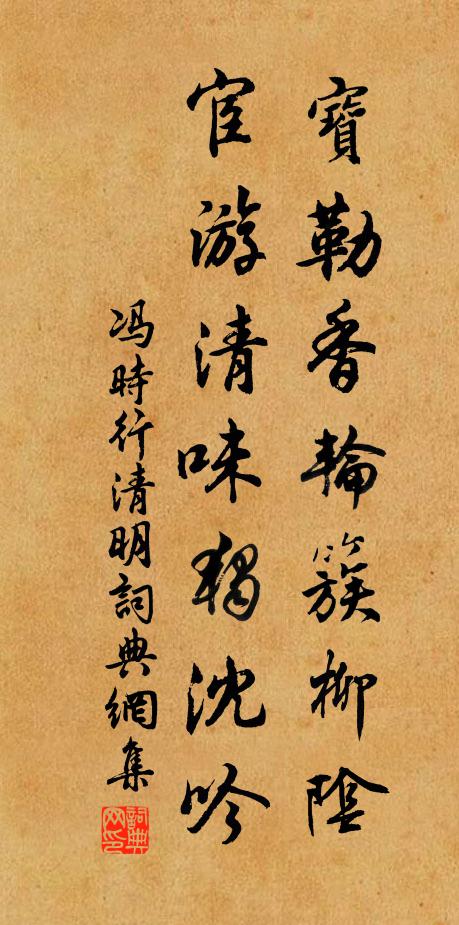 寶勒香輪簇柳陰
宦游清味獨沈吟
馮時行清明詞典網集
詞典网印